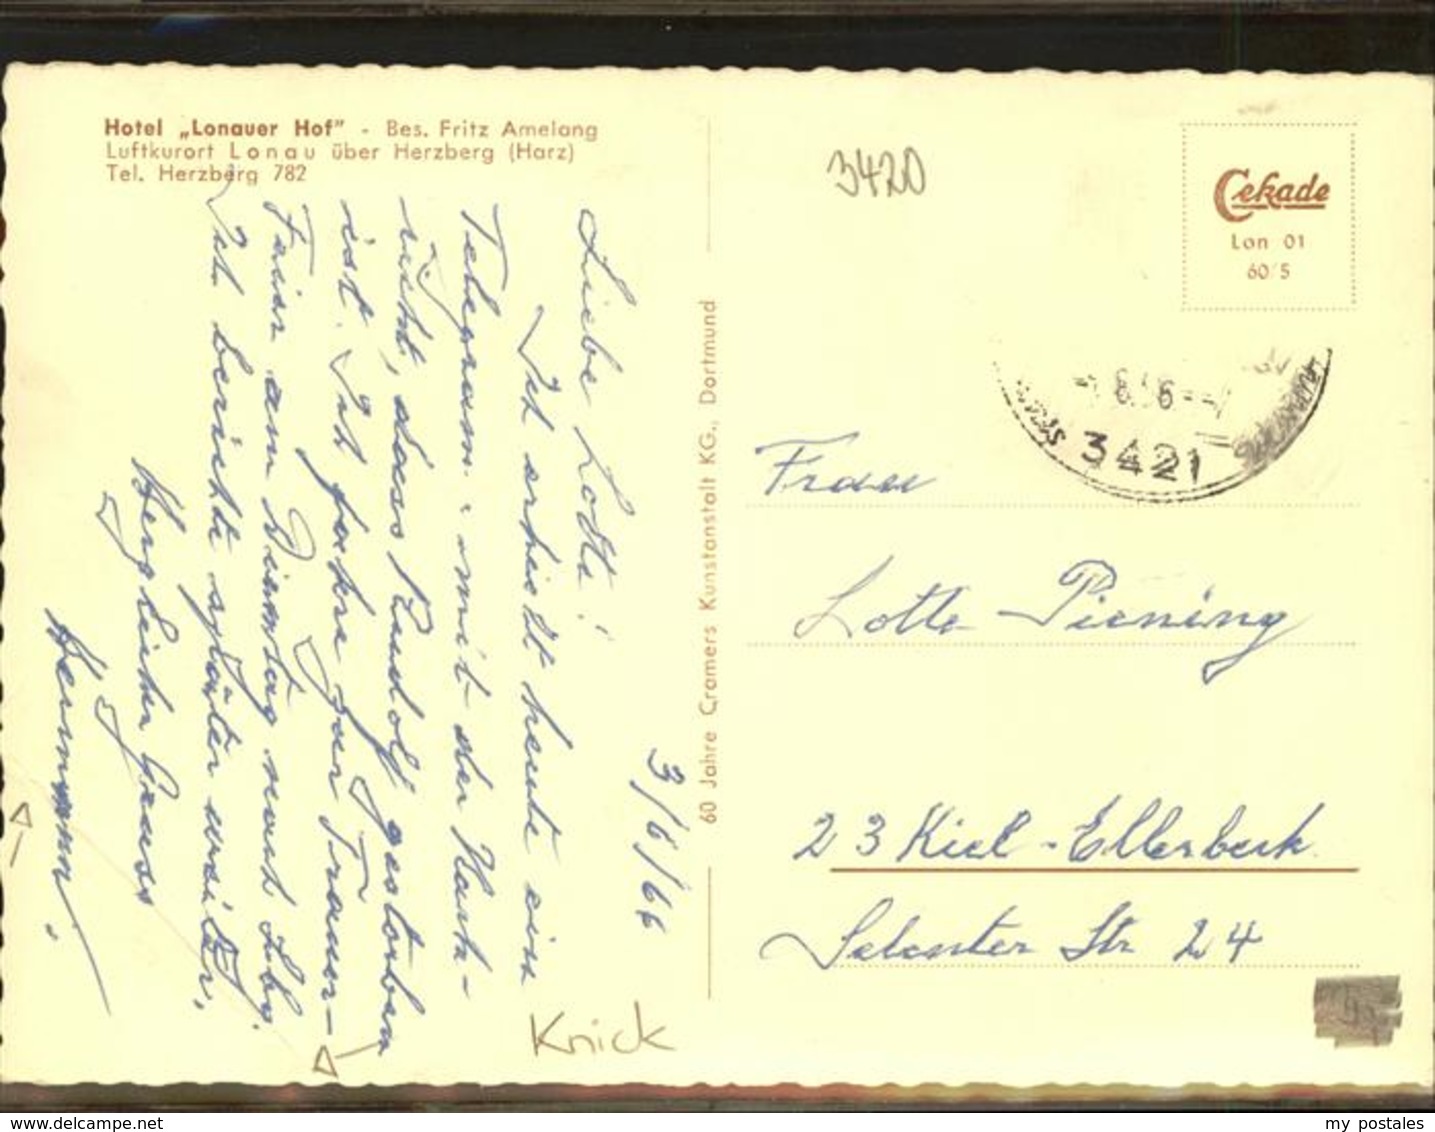 Hotel „Lonauer Hof" - Bes. Fritz Amelang
Luftkurort Lonau über Herzberg (Harz)
Tel. Herzberg 782
3/6/66
Liebe Lotte!
Ich erhielt heute ein
Telegramm mit der Nach-
richt, dass Rudolf gestorben
ist. Ich fahre zur Trauer-
Feier am Dienstag nach Lbg.
Ich berichte später weiter.
Herzlichen Gruss
Hermann.
Knick
60 Jahre Cramers Kunstanstalt KG., Dortmund
3420
Cekade
Lon 01
60/5
3421
Frau
Lotte Piening
23 Kiel-Ellerbeck
Selenter Str 24
my postales